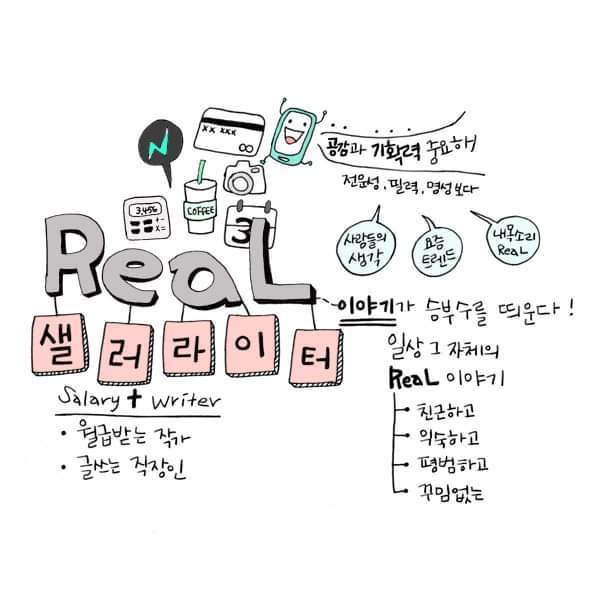 xx xxx
공감과 기획력 중요해
전문성, 필력, 명성보다
COFFEE
3,456
3
사람들의
생각
요즘
트렌드
내 목소리
ReaL
ReaL
샐러라이터
이야기가 승부수를 띄운다!
일상 그 자체의
ReaL 이야기
친근하고
익숙하고
평범하고
꾸밈없는
Salary + writer
• 월급받는 작가
• 글쓰는 직장인